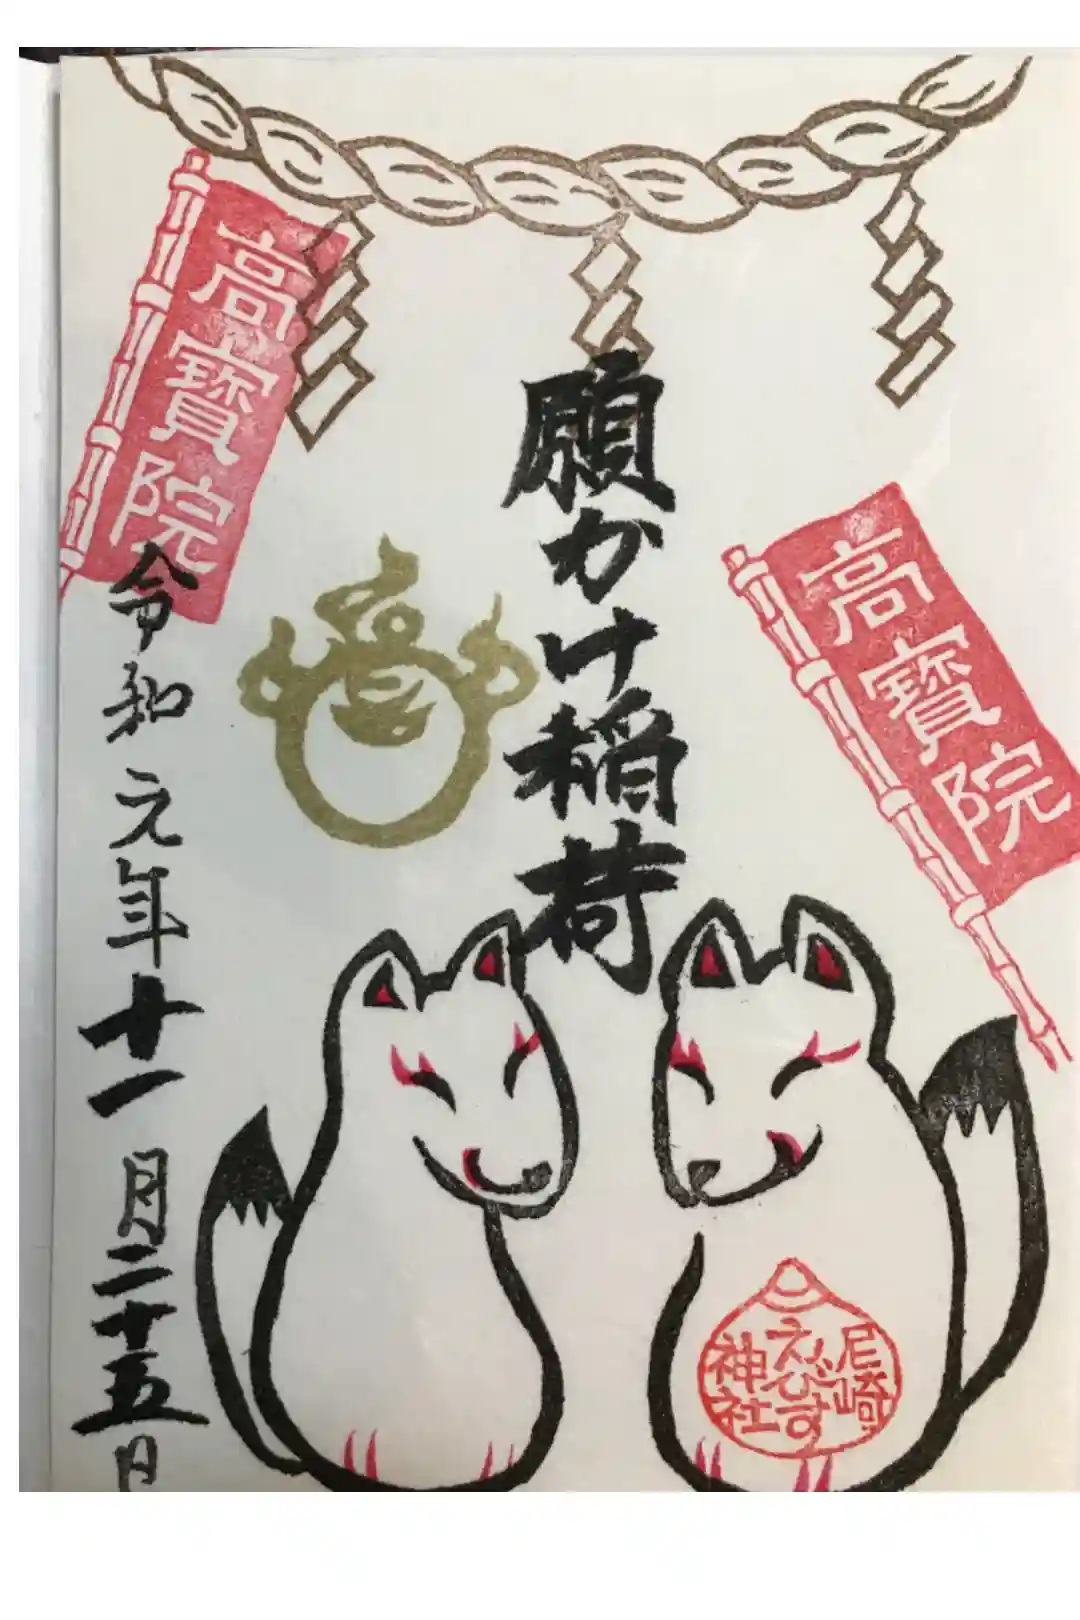 高寳院
願かけ稲荷
高寳院
令和元年十一月二十五日
尼崎
えびす
神社